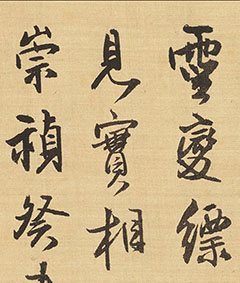 靈變縹
見寶相
崇禎癸